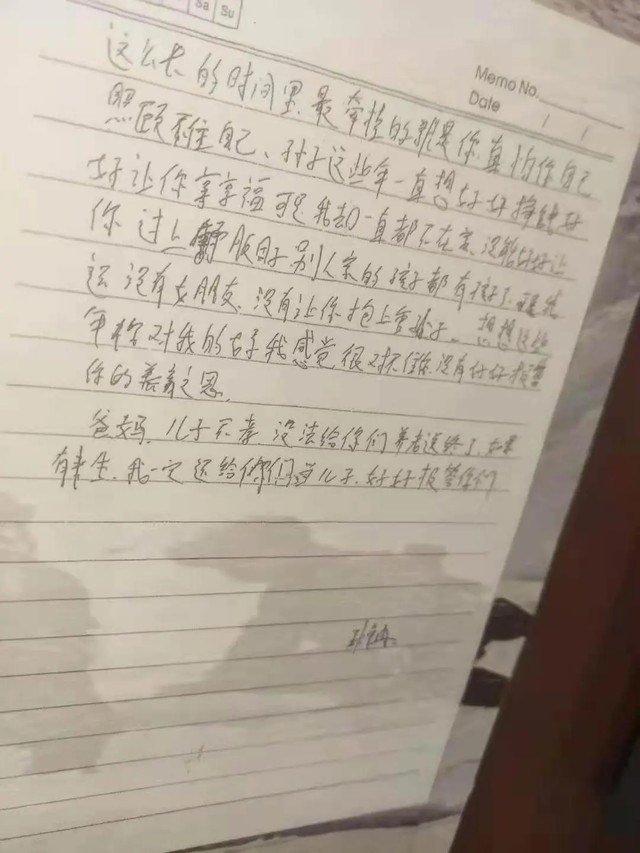 Sa Su
Memo No.
Date / /
这么长的时间里最牵挂的就是你真怕你自己
照顾不住自己、孙子这些年一直想好好挣钱好
好让你享享福可是我却一直都不在家没能好好让
你过上舒服日子别人家的孩子都有孩子了可是我
还没有女朋友、没有让你抱上重孙子。想想这些
年你对我的好我感觉很对不住你没有好好报答
你的养育之恩
爸妈，儿子不孝没法给你们养老送终了如果
有来生、我一定还给你们当儿子、好好报答你们